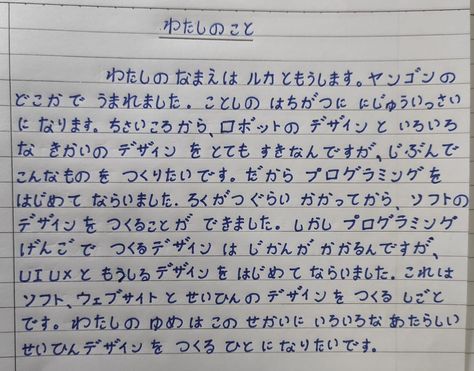 わたしのこと
わたしの なまえは ルカともうします。ヤンゴンの
どこかで うまれました。ことしの はちがつに にじゅういっさい
に なります。ちさいころから、ロボットの デザインと いろいろ
な きかいの デザインを とても すきなんですが、じぶんで
こんなものを つくりたいです。だから プログラミングを
はじめて ならいました。ろくがつぐらい かかってから、ソフトの
デザインを つくることが できました。しかし プログラミング
げんごで つくるデザインは じかんが かかるんですが、
UI UXと もうしるデザインを はじめて ならいました。これは
ソフト、ウェブサイトと せいひんの デザインを つくる しごと
です。わたしの ゆめは この せかいに いろいろな あたらしい
せいひんデザインを つくる ひとに なりたいです。